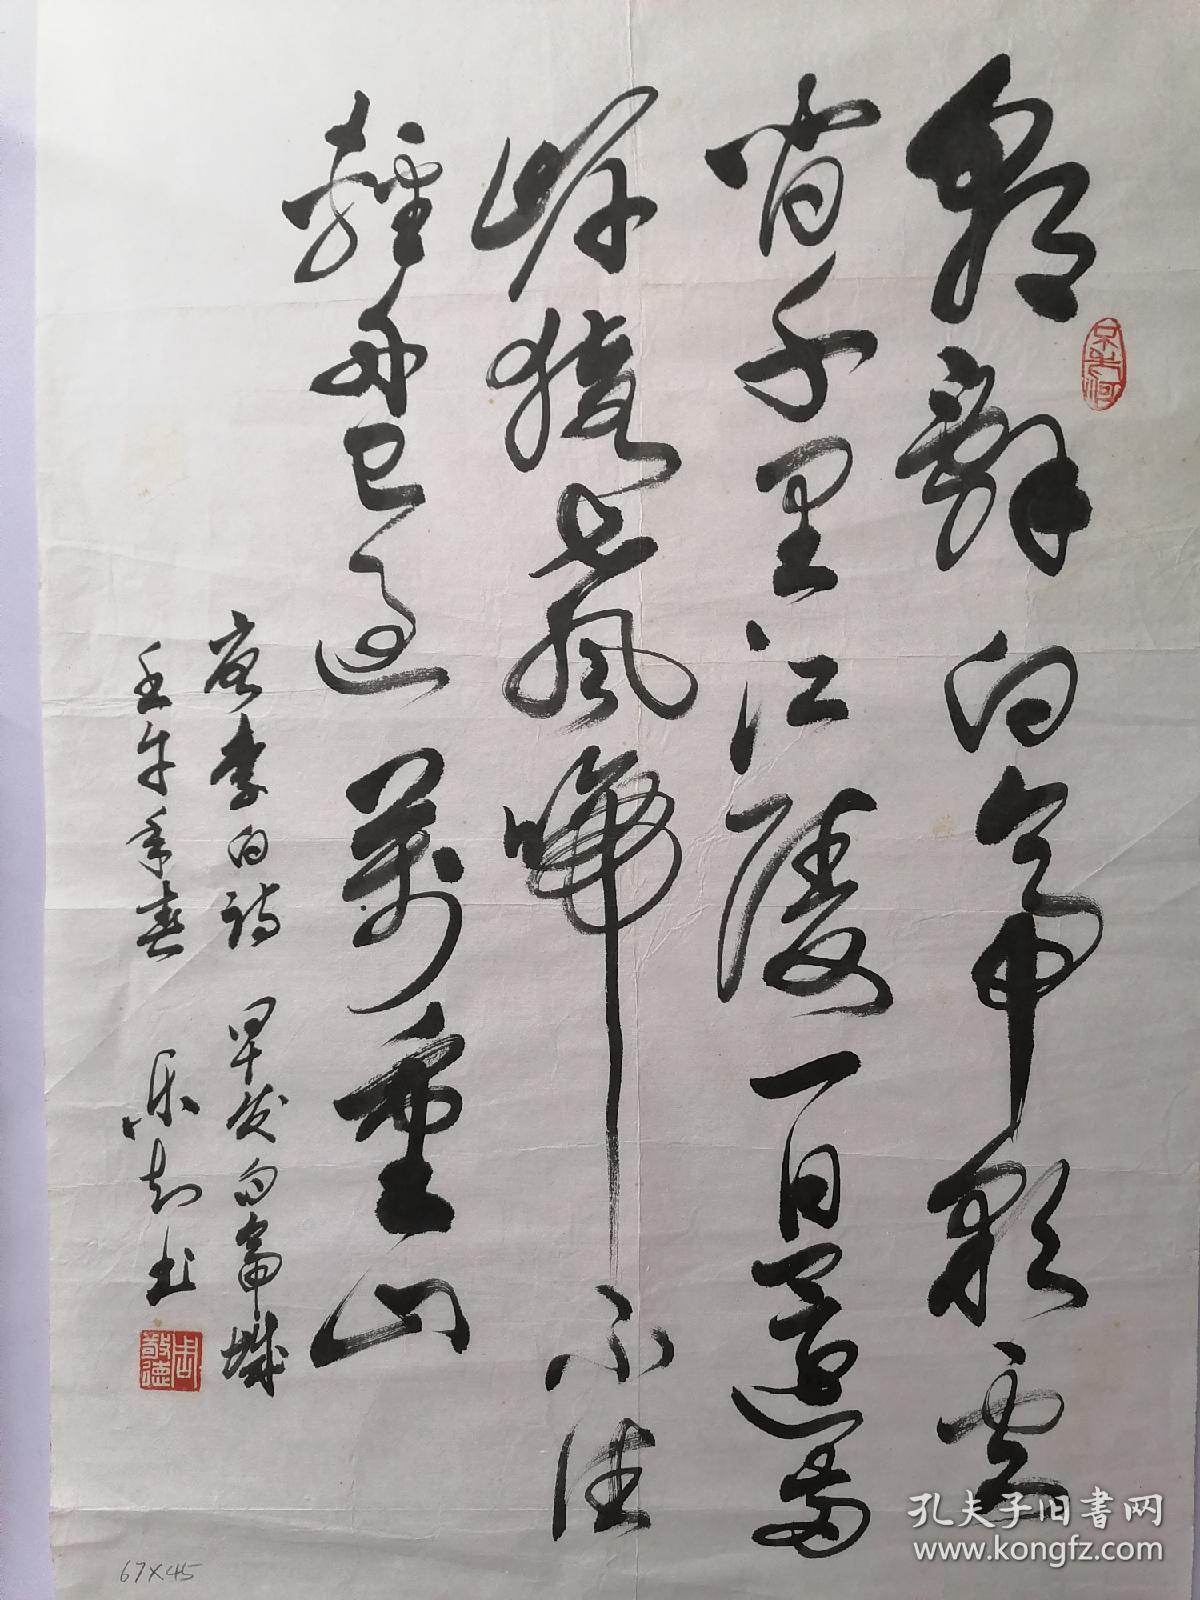 朝辭白帝彩雲
間千里江陵一日還兩
岸猿聲啼不住
輕舟已過萬重山
唐李白詩 早发白帝城
壬午年春 乐 书
周敬德
67X45
孔夫子旧书网
www.kongfz.com